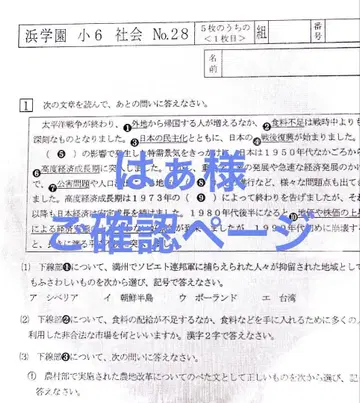 浜学園 小6 社会 No.28
5枚のうちの
<1枚目>
組
番号
名前
1 次の文章を読んで,あとの問いに答えなさい。
太平洋戦争が終わり,❶外地から帰国する人が増えるなか,❷食料不足は戦時中よりも
深刻なものとなりました。❸日本の民主化とともに,日本の❹戦後復興が始まりました。
(❺)の影響で発生した特需景気をきっかけに,日本は1950年代なかごろから
❻高度経済成長期に突入しました。
❼公害問題や人口
ました。高度経済成長は1973年の(❾)によって終わりを告げましたが,それ
以降も日本経済は
1980年代後半になると,❿地価や株価の上昇
による経済
1990年代初めに崩壊す
はぁ様
ご確認ページ
(1) 下線部❶について,満州でソビエト連邦軍に捕らえられた人々が抑留された地域として
もふさわしいものを次から選び,記号で答えなさい。
ア シベリア イ 朝鮮半島 ウ ポーランド エ 台湾
(2) 下線部❷について,食料の配給が不足するなか,食料などを手に入れるために多くの人
利用した非合法な市場を何といいますか。漢字2字で答えなさい。
(3) 下線部❸について,次の問いに答えなさい。
① 農村部で実施された農地改革についてのべた文として正しいものを次から選び,記
答えなさい。